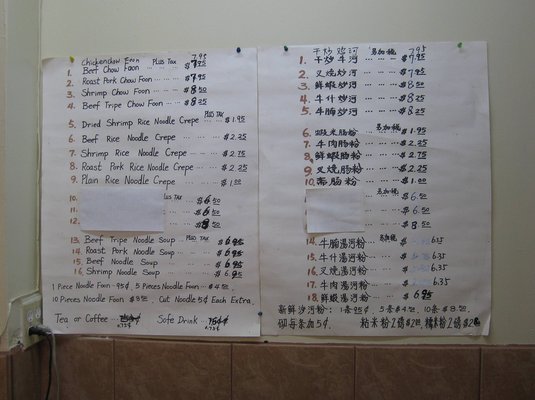 7.95
Chicken Chow Foon PLUS TAX
1. Beef Chow Foon ... $7.95
2. Roast Pork Chow Foon ... $7.95
3. Shrimp Chow Foon ... $8.50
4. Beef Tripe Chow Foon ... $8.25
PLUS TAX
5. Dried Shrimp Rice Noodle Crepe ... $1.95
6. Beef Rice Noodle Crepe ... $2.25
7. Shrimp Rice Noodle Crepe ... $2.75
8. Roast Pork Rice Noodle Crepe ... $2.25
9. Plain Rice Noodle Crepe ... $1.00
10. PLUS TAX $6.50
11. $6.50
12. $8.50
13. Beef Tripe Noodle Soup ... PLUS TAX $6.95
14. Roast Pork Noodle Soup ... $6.95
15. Beef Noodle Soup ... $6.95
16. Shrimp Noodle Soup ... $6.95
1 Piece Noodle Foon 95¢ 5 Pieces Noodle Foon $4.50
10 Pieces Noodle Foon $8.50 Cut Noodle 5¢ Each Extra.
Tea or Coffee ... 75¢ Soft Drink ... 75¢
干炒鸡河 另加税 7.95
1. 干炒牛河 ... $7.95
2. 叉燒炒河 ... $7.95
3. 鮮蝦炒河 ... $8.50
4. 牛什炒河 ... $8.25
5. 牛腩炒河 ... $8.25
6. 蝦米腸粉 另加税 $1.95
7. 牛肉腸粉 ... $2.25
8. 鮮蝦腸粉 ... $2.75
9. 叉燒腸粉 ... $2.25
10. 齋腸粉 ... $1.00
另加税
$6.50
$6.50
$8.50
14. 牛腩湯河粉 ... 另加税 6.35
15. 牛什湯河粉 ... 6.35
16. 叉燒湯河粉 ... 6.35
17. 牛肉湯河粉 ... 6.35
18. 鮮蝦湯河粉 ... $6.95
新鮮沙河粉: 1条95¢ 5条$4.50, 10条$8.50.
切每条加5¢. 粘米粉2磅$2, 糯米粉2磅$2